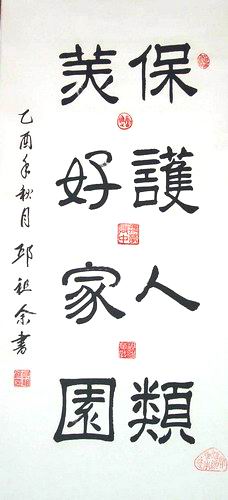 保護人類
美好家園
乙酉年秋月邱祖余書